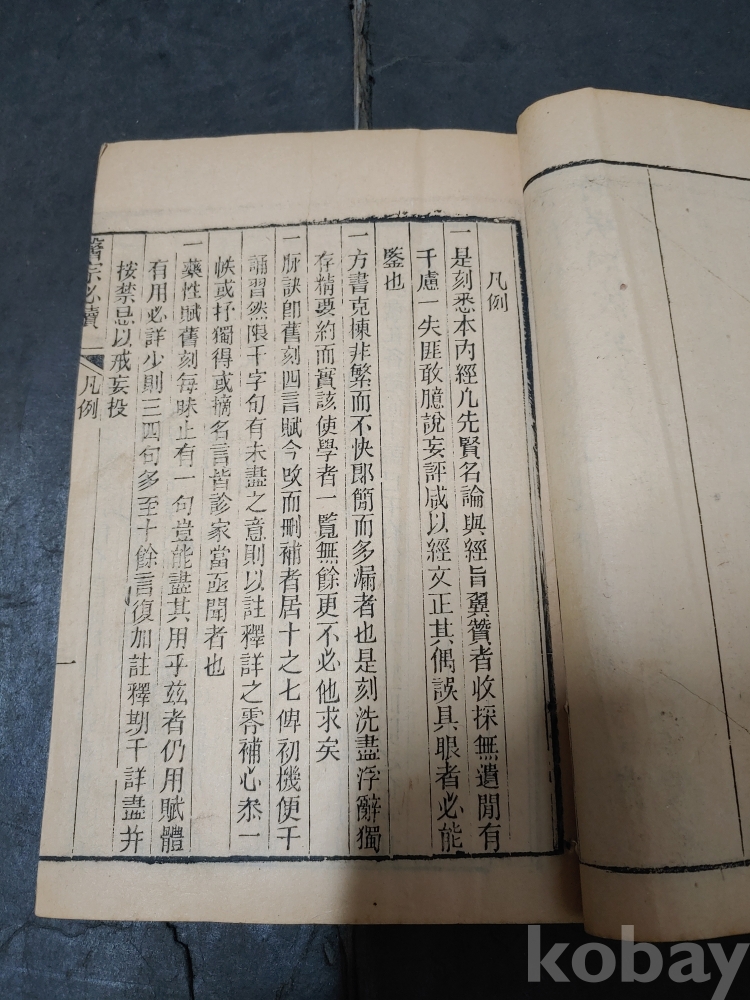 凡例
一是刻悉本內經凡先賢名論與經旨翼贊者收採無遺閒有
千慮一失匪敢臆說妄評咸以經文正其偶誤具眼者必能
鑒也
一方書克棟非繁而不快卽簡而多漏者也是刻洗盡浮辭獨
存精要約而實該使學者一覽無餘更不必他求矣
一脈訣卽舊刻四言賦今攺而刪補者居十之七俾初機便于
誦習然限于字句有未盡之意則以註釋詳之零補心叅一
帙或抒獨得或摘名言皆診家當亟聞者也
一藥性賦舊刻每味止有一句豈能盡其用乎茲者仍用賦體
有用必詳少則三四句多至十餘言復加註釋期于詳盡幷
按禁忌以戒妄投
醫宗必讀
凡例
一
kobay